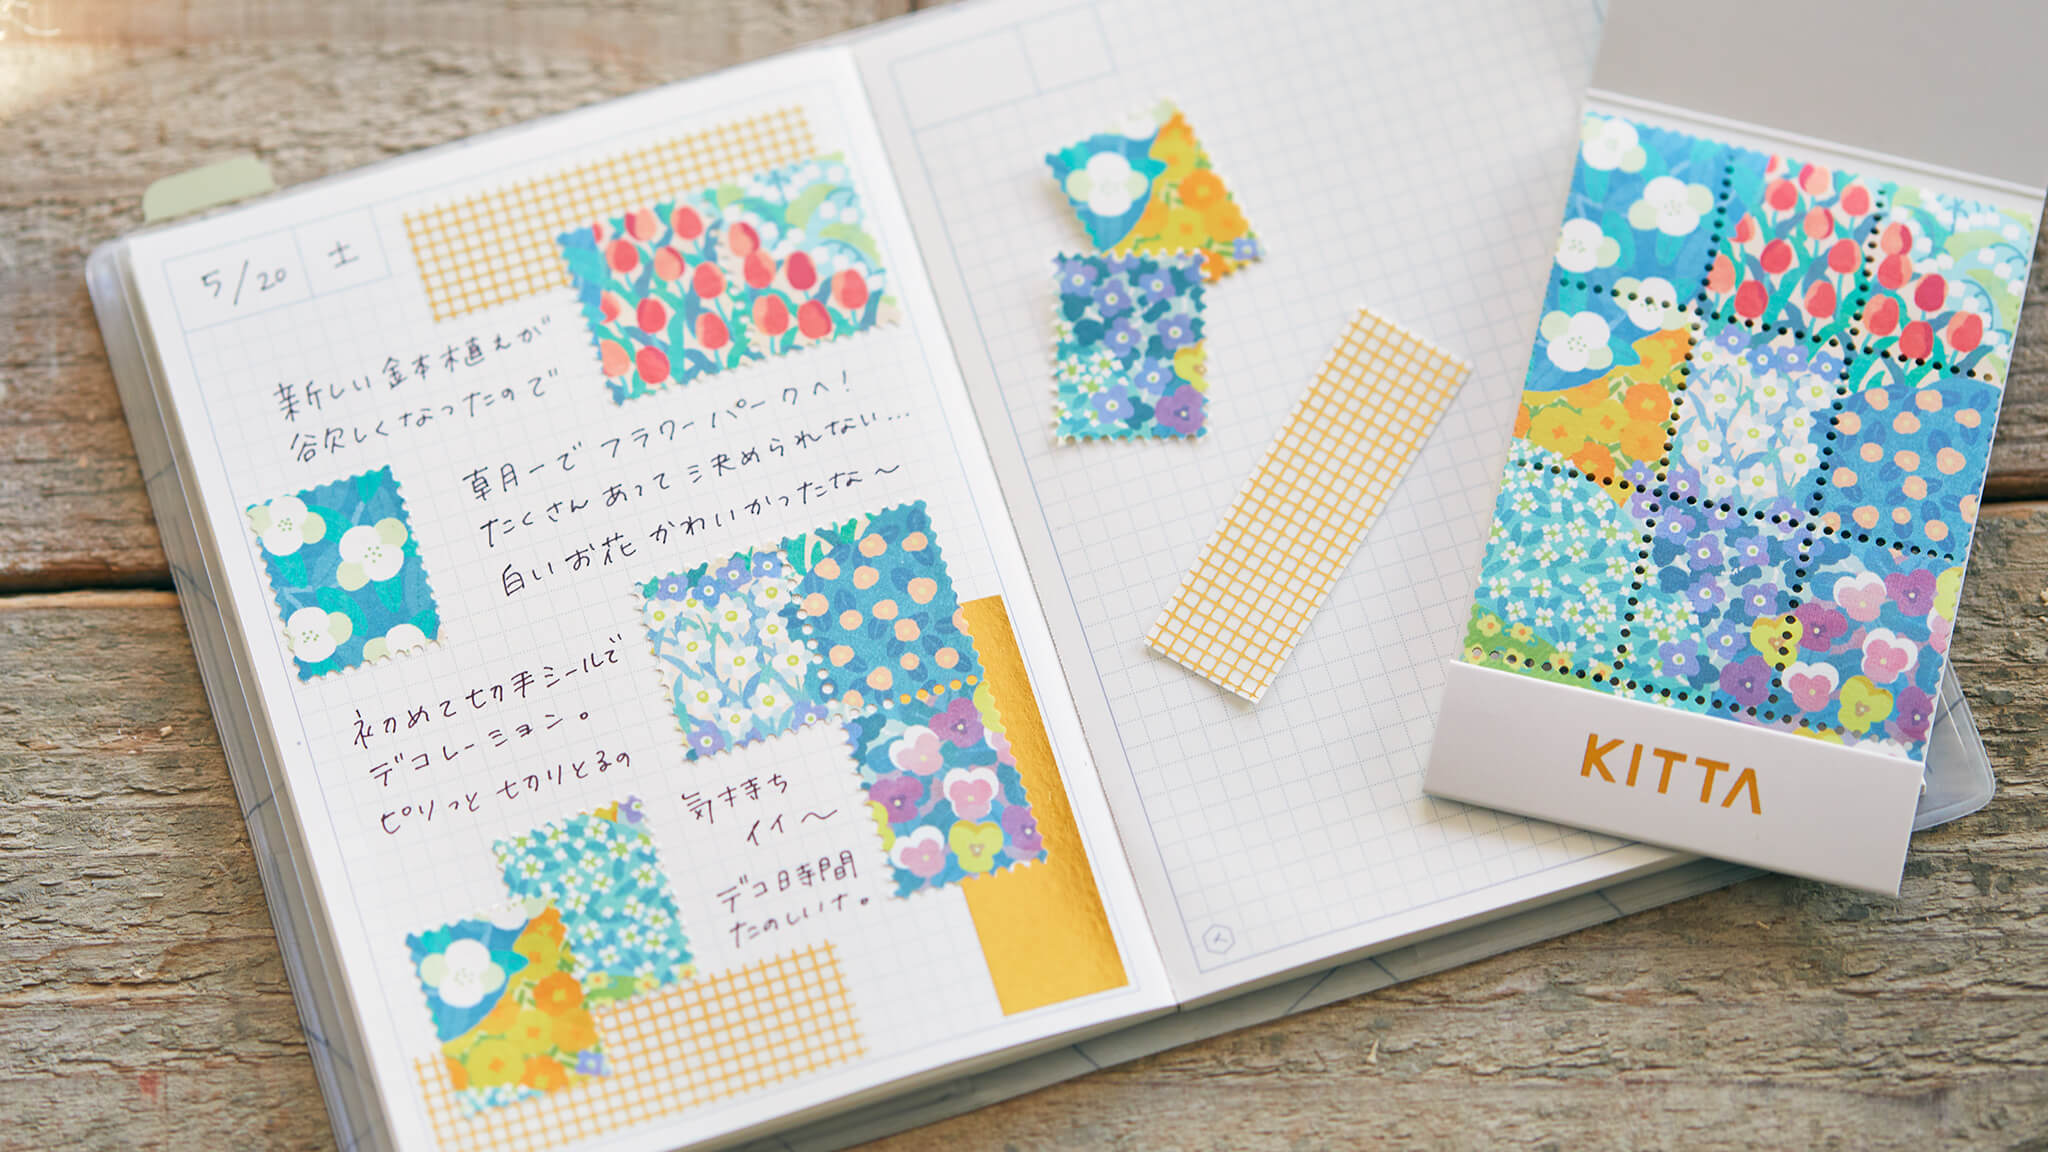 5/20 土
新しい鉢植えが
欲しくなったので
草月一でフラワーパークへ!
たくさんあって決められない…
白いお花かわいかったな〜
初めて切手シールで
デコレーション。
ピリっと切りとるの
気持ち
イイ〜
デコ時間
たのしいナ。
KITTA